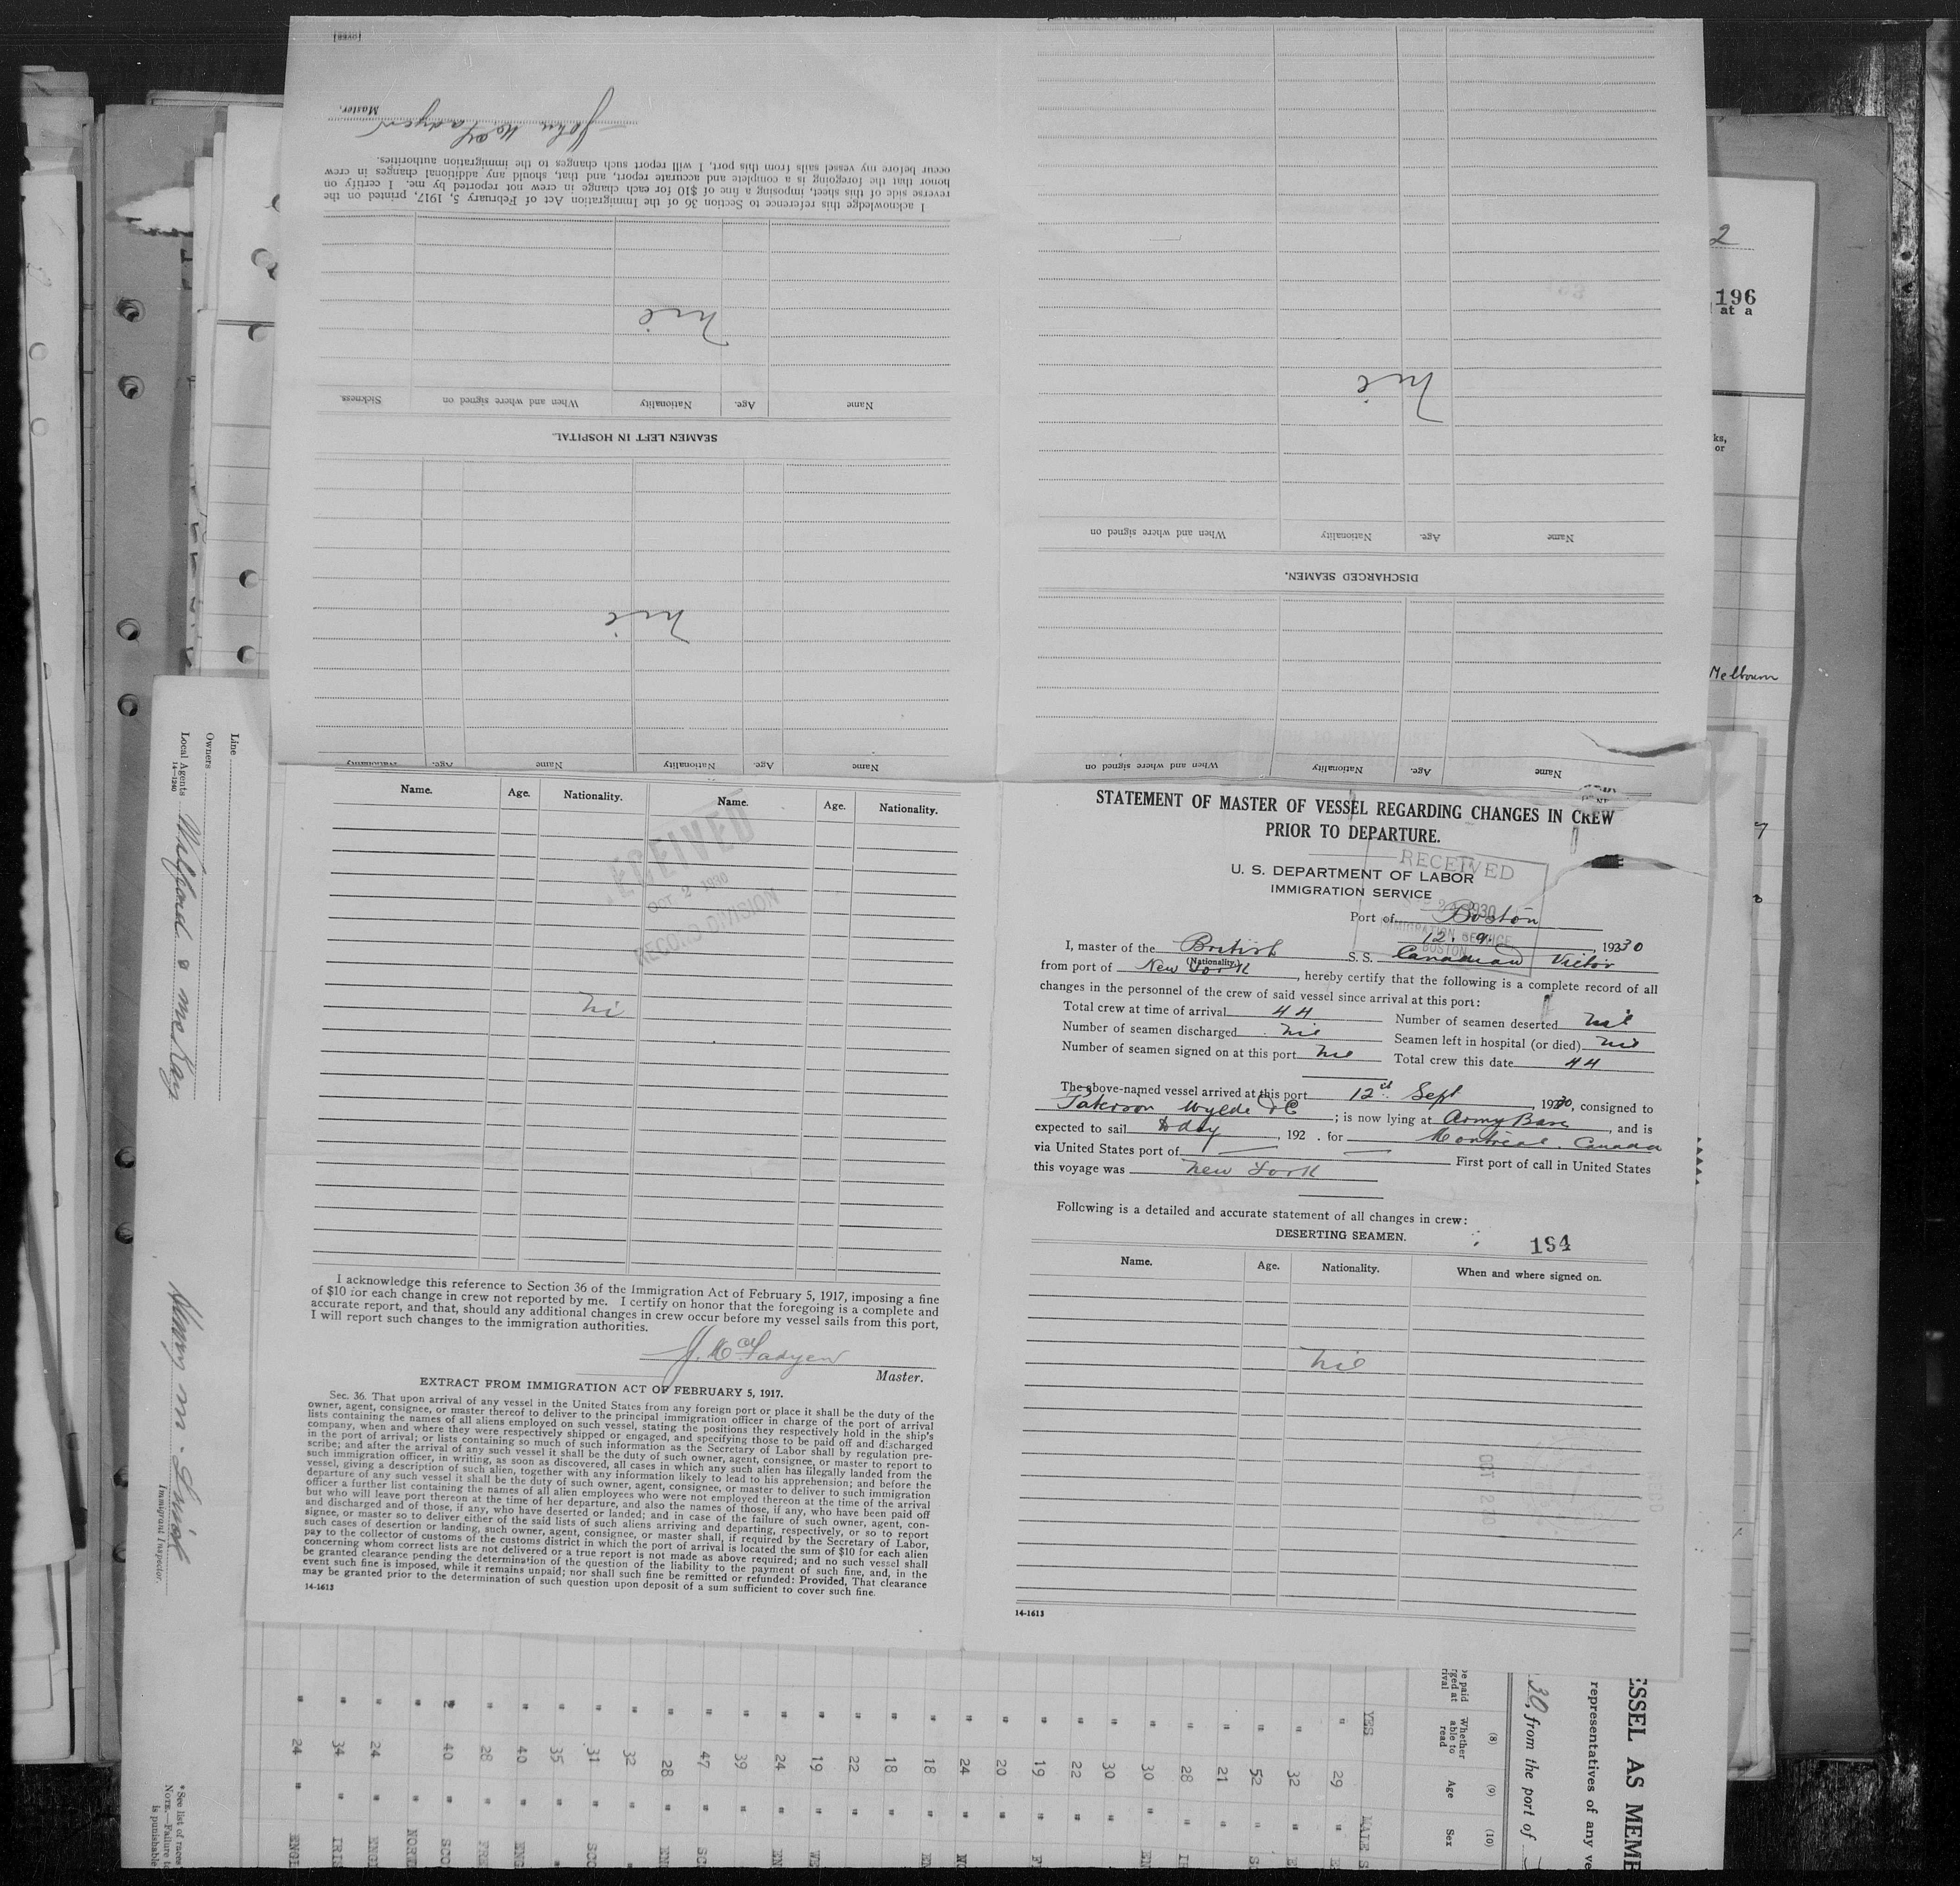 STATEMENT OF MASTER OF VESSEL REGARDING CHANGES IN CREW
PRIOR TO DEPARTURE.
RECEIVED
U. S. DEPARTMENT OF LABOR
IMMIGRATION SERVICE
Port of Boston
12. 9. , 19230
I, master of the British S.S. Canadian Victor
(Nationality.)
from port of New York , hereby certify that the following is a complete record of all
changes in the personnel of the crew of said vessel since arrival at this port:
Total crew at time of arrival 44 Number of seamen deserted nil
Number of seamen discharged nil Seamen left in hospital (or died) nil
Number of seamen signed on at this port nil Total crew this date 44
The above-named vessel arrived at this port 12th Sept , 19230, consigned to
Paterson Wylde & C ; is now lying at Army Base , and is
expected to sail today , 192 . for Montreal. Canada
via United States port of — — First port of call in United States
this voyage was New York
Following is a detailed and accurate statement of all changes in crew:
DESERTING SEAMEN.
194
Name. Age. Nationality. When and where signed on.
nil
OCT 2 30
14-1613
Name. Age. Nationality. Name. Age. Nationality.
RECEIVED
OCT 2 1930
RECORD DIVISION
ni
I acknowledge this reference to Section 36 of the Immigration Act of February 5, 1917, imposing a fine
of $10 for each change in crew not reported by me. I certify on honor that the foregoing is a complete and
accurate report, and that, should any additional changes in crew occur before my vessel sails from this port,
I will report such changes to the immigration authorities.
J. McFadyen
Master.
EXTRACT FROM IMMIGRATION ACT OF FEBRUARY 5, 1917.
Sec. 36. That upon arrival of any vessel in the United States from any foreign port or place it shall be the duty of the
owner, agent, consignee, or master thereof to deliver to the principal immigration officer in charge of the port of arrival
lists containing the names of all aliens employed on such vessel, stating the positions they respectively hold in the ship's
company, when and where they were respectively shipped or engaged, and specifying those to be paid off and discharged
in the port of arrival; or lists containing so much of such information as the Secretary of Labor shall by regulation pre-
scribe; and after the arrival of any such vessel it shall be the duty of such owner, agent, consignee, or master to report to
such immigration officer, in writing, as soon as discovered, all cases in which any such alien has illegally landed from the
vessel, giving a description of such alien, together with any information likely to lead to his apprehension; and before the
departure of any such vessel it shall be the duty of such owner, agent, consignee, or master to deliver to such immigration
officer a further list containing the names of all alien employees who were not employed thereon at the time of the arrival
but who will leave port thereon at the time of her departure, and also the names of those, if any, who have been paid off
and discharged and of those, if any, who have deserted or landed; and in case of the failure of such owner, agent, con-
signee, or master so to deliver either of the said lists of such aliens arriving and departing, respectively, or so to report
such cases of desertion or landing, such owner, agent, consignee, or master shall, if required by the Secretary of Labor,
pay to the collector of customs of the customs district in which the port of arrival is located the sum of $10 for each alien
concerning whom correct lists are not delivered or a true report is not made as above required; and no such vessel shall
be granted clearance pending the determination of the question of the liability to the payment of such fine, and, in the
event such fine is imposed, while it remains unpaid; nor shall such fine be remitted or refunded: Provided, That clearance
may be granted prior to the determination of such question upon deposit of a sum sufficient to cover such fine.
14-1613
Name Age. Nationality When and where signed on
DISCHARGED SEAMEN.
Name Age. Nationality When and where signed on
nil
Name Age. Nationality Name Age. Nationality
nil
SEAMEN LEFT IN HOSPITAL.
Name Age. Nationality When and where signed on Sickness.
nil
I acknowledge this reference to Section 36 of the Immigration Act of February 5, 1917, printed on the
reverse side of this sheet, imposing a fine of $10 for each change in crew not reported by me. I certify on
honor that the foregoing is a complete and accurate report, and that, should any additional changes in crew
occur before my vessel sails from this port, I will report such changes to the immigration authorities.
John McFadyen
Master.
[OVER]
2
196
at a
ks,
or
Melbourn
Line
Owners
Local Agents Wilford & McKay
14-1240
Immigrant Inspector.
* See list of races
NOTE.—Failure t
is punishable
ESSEL AS MEMB
representatives of any ve
30, from the port of
(8) (9) (10)
Whether able to read Age Sex
YES 29 MALE
32
52
21
28
30
30
22
19
20
24
18
18
22
19
24
39
47
28
32
31
35
40
28
40
24
34
24